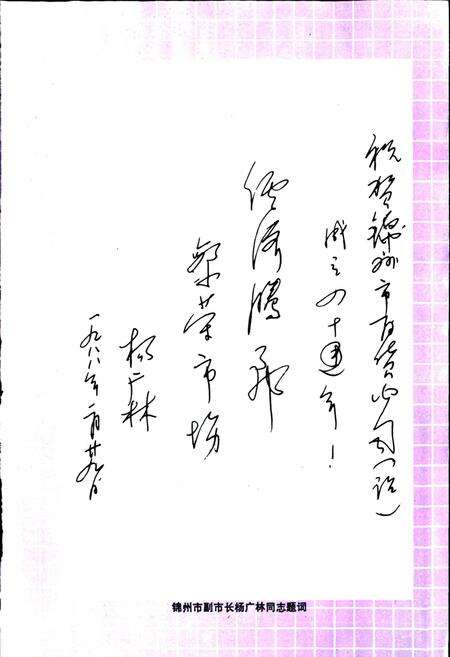 祝贺锦州市百货公司(站)
成立四十週年!
经济腾飞
繁荣市场
杨广林
一九八八年二月廿九日
锦州市副市长杨广林同志题词